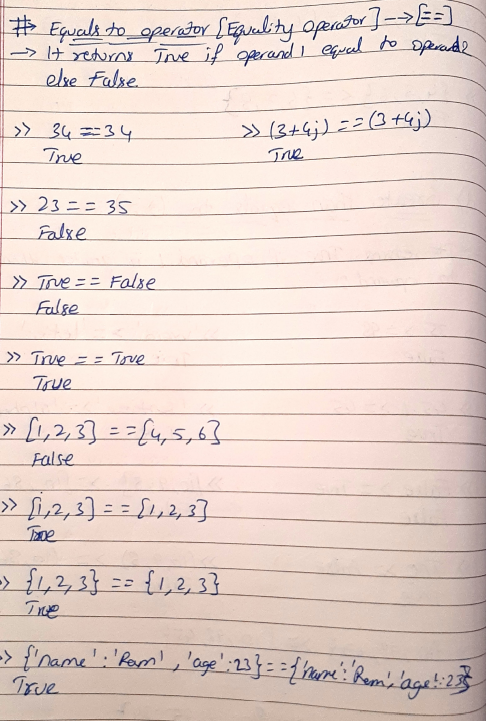 # Equals to operator [Equality operator] → [==]
→ It returns True if operand1 equal to operand2
else False.
>> 34 == 34
True
>> (3+4j) == (3+4j)
True
>> 23 == 35
False
>> True == False
False
>> True == True
True
>> [1,2,3] == [4,5,6]
False
>> [1,2,3] == [1,2,3]
True
>> {1,2,3} == {1,2,3}
True
>> {'name':'Ram', 'age':23} == {'name':'Ram','age':23}
True